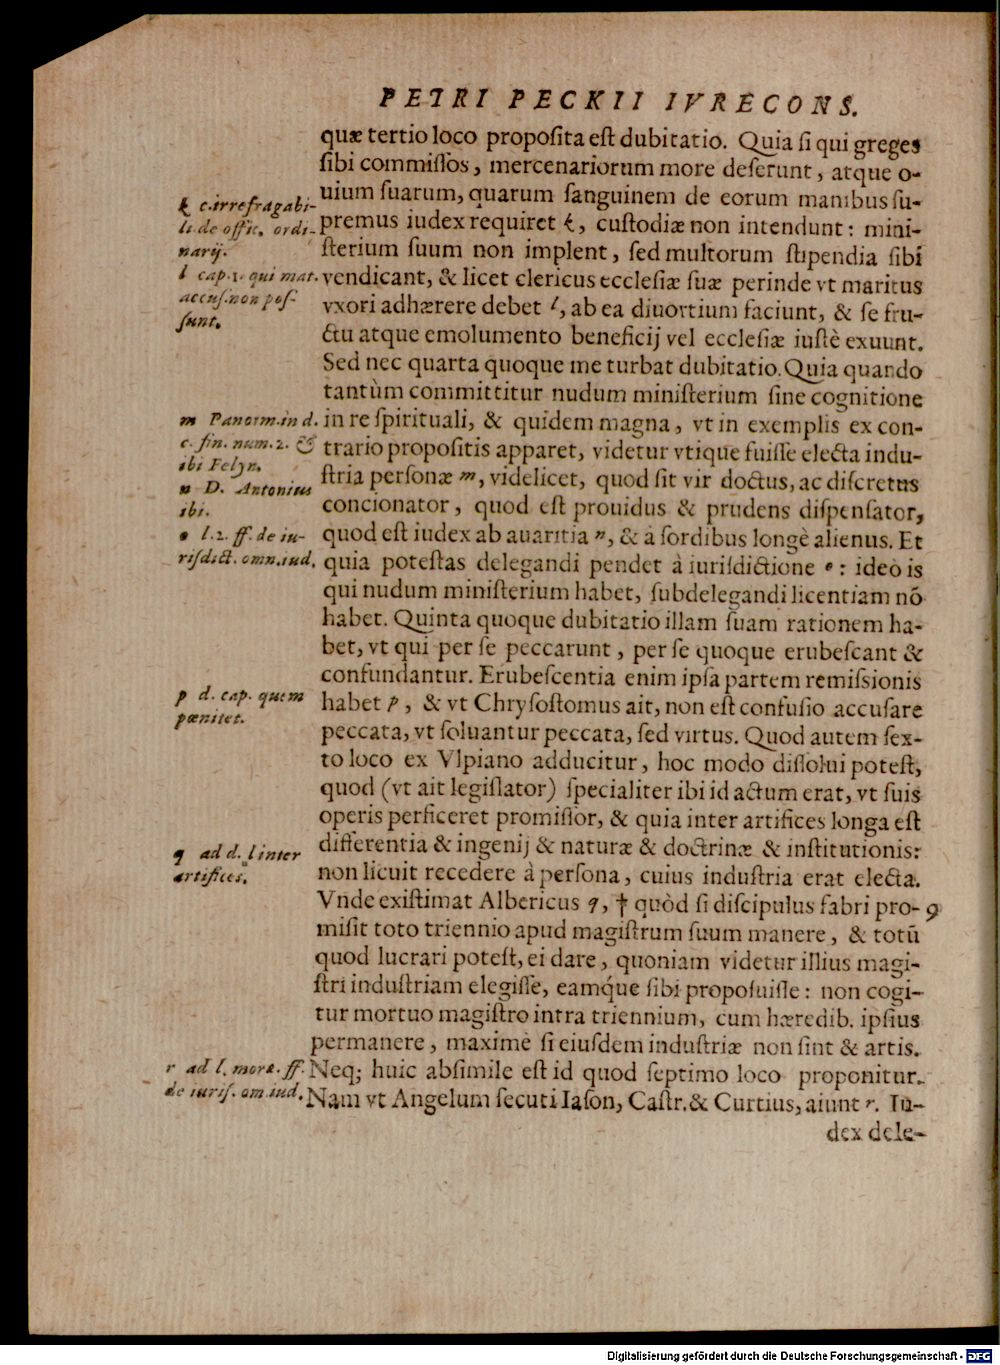 PETRI PECKII IVRECONS.
quæ tertio loco proposita est dubitatio. Quia si qui greges
sibi commissos, mercenariorum more deserunt, atque o-
uium suarum, quarum sanguinem de eorum manibus su-
premus iudex requiret k, custodiæ non intendunt: mini-
sterium suum non implent, sed multorum stipendia sibi
vendicant, & licet clericus ecclesiæ suæ perinde vt maritus
vxori adhærere debet l, ab ea diuortium faciunt, & se fru-
ctu atque emolumento beneficij vel ecclesiæ iustè exuunt.
Sed nec quarta quoque me turbat dubitatio. Quia quando
tantùm committitur nudum ministerium sine cognitione
in re spirituali, & quidem magna, vt in exemplis ex con-
trario propositis apparet, videtur vtique fuisse electa indu-
stria personæ m, videlicet, quod sit vir doctus, ac discretus
concionator, quod est prouidus & prudens dispensator,
quod est iudex ab auaritia n, & a sordibus longè alienus. Et
quia potestas delegandi pendet à iurisdictione o: ideo is
qui nudum ministerium habet, subdelegandi licentiam nō
habet. Quinta quoque dubitatio illam suam rationem ha-
bet, vt qui per se peccarunt, per se quoque erubescant &
confundantur. Erubescentia enim ipsa partem remissionis
habet p, & vt Chrysostomus ait, non est confusio accusare
peccata, vt soluantur peccata, sed virtus. Quod autem sex-
to loco ex Vlpiano adducitur, hoc modo dissolui potest,
quod (vt ait legislator) specialiter ibi id actum erat, vt suis
operis perficeret promissor, & quia inter artifices longa est
differentia & ingenij & naturæ & doctrinæ & institutionis:
non licuit recedere à persona, cuius industria erat electa.
Vnde existimat Albericus q, † quòd si discipulus fabri pro- 9
misit toto triennio apud magistrum suum manere, & totū
quod lucrari potest, ei dare, quoniam videtur illius magi-
stri industriam elegisse, eamq́ue sibi proposuisse: non cogi-
tur mortuo magistro intra triennium, cum hæredib. ipsius
permanere, maximè si eiusdem industriæ non sint & artis.
Neq; huic absimile est id quod septimo loco proponitur.
Nam vt Angelum secuti Iason, Castr. & Curtius, aiunt r. Iu-
dex dele-
k c. irrefragabi-
li. de offic. ordi-
narij.
l cap. 1. qui mat.
accus. non pos-
sunt.
m Panorm. in d.
c. fin. num. 2. &
ibi Felyn.
n D. Antonius
ibi.
o l. 2. ff. de iu-
risdict. omn. iud.
p d. cap. quem
pœnitet.
q ad d. l inter
artifices.
r ad l. more. ff.
de iuris. om. iud.
Digitalisierung gefördert durch die Deutsche Forschungsgemeinschaft - DFG